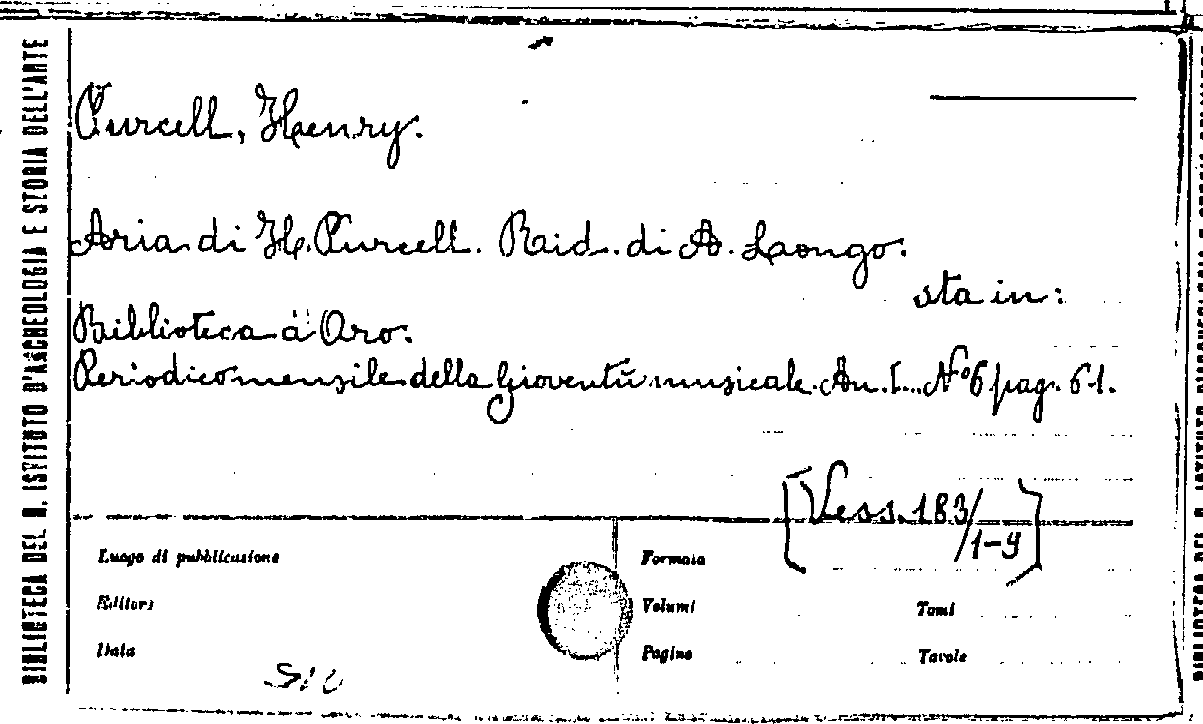 BIBLIOTECA DEL R. ISTITUTO D'ARCHEOLOGIA E STORIA DELL'ARTE
Purcell, Henry.
Aria di H. Purcell. Raid. di A. Laongo.
sta in:
Biblioteca d'Oro.
Periodico mensile della Gioventù musicale. An. I... N° 6 pag. 61.
[Vess. 183/1-9]
Luogo di pubblicazione
Editore
Data
Formato
Volumi
Tomi
Pagine
Tavole